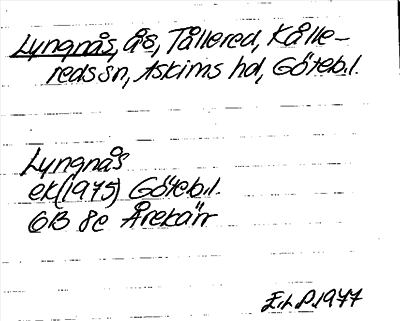 Lyngnås, ås, Tållered, Kålle-
redssn, Askims hd, Götebl.
Lyngnås
ek(1975) Götebl.
6B 8e Årekärr
E.L.P.1977